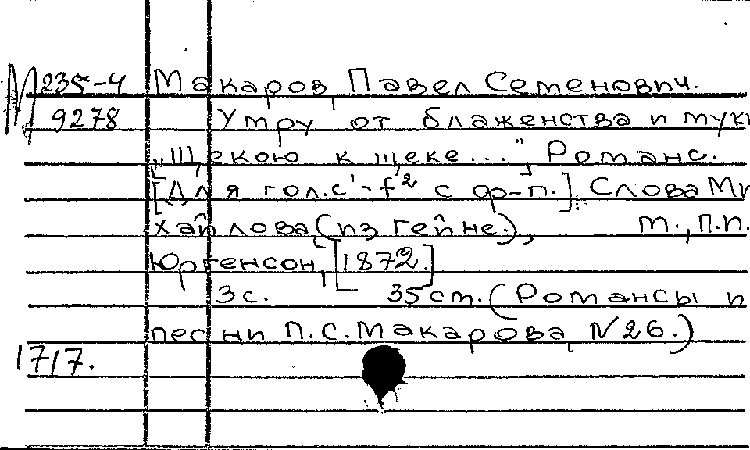 М 235-4 Макаров, Павел Семенович.
9278 Умру от блаженства и мук
„Щекою к щеке...", Романс.
[Для гол. c¹-f² с ф-п.]. Слова Ми
хайлова (из Гейне.), М., П.П.
Юргенсон, [1872.]
3с. 35 ст. (Романсы и
песни П.С. Макарова, №26.)
1717.